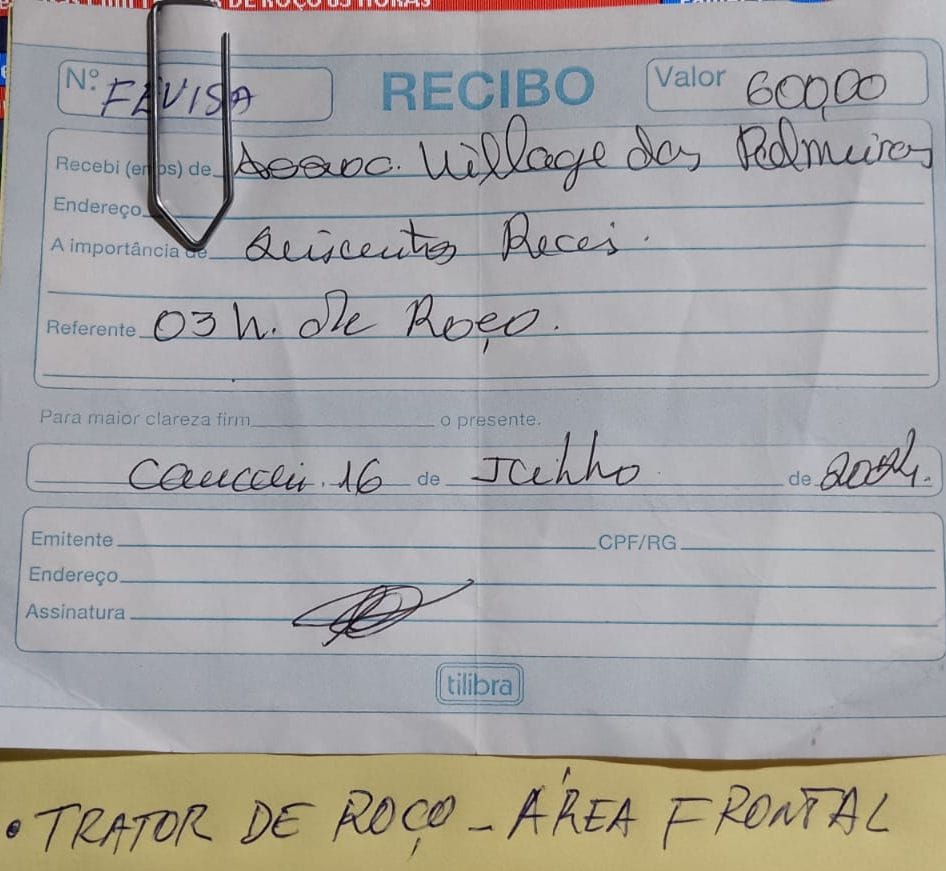 DE ROÇO 03 HORAS
Nº: FEVISA RECIBO Valor 600,00
Recebi (emos) de Assoc. Village das Palmeiras
Endereço
A importância de Seiscentos Reais.
Referente 03 h. de Roço.
Para maior clareza firm o presente.
Caucaia. 16 de Junho de 2024.
Emitente CPF/RG
Endereço
Assinatura
tilibra
• TRATOR DE ROÇO - ÁREA FRONTAL